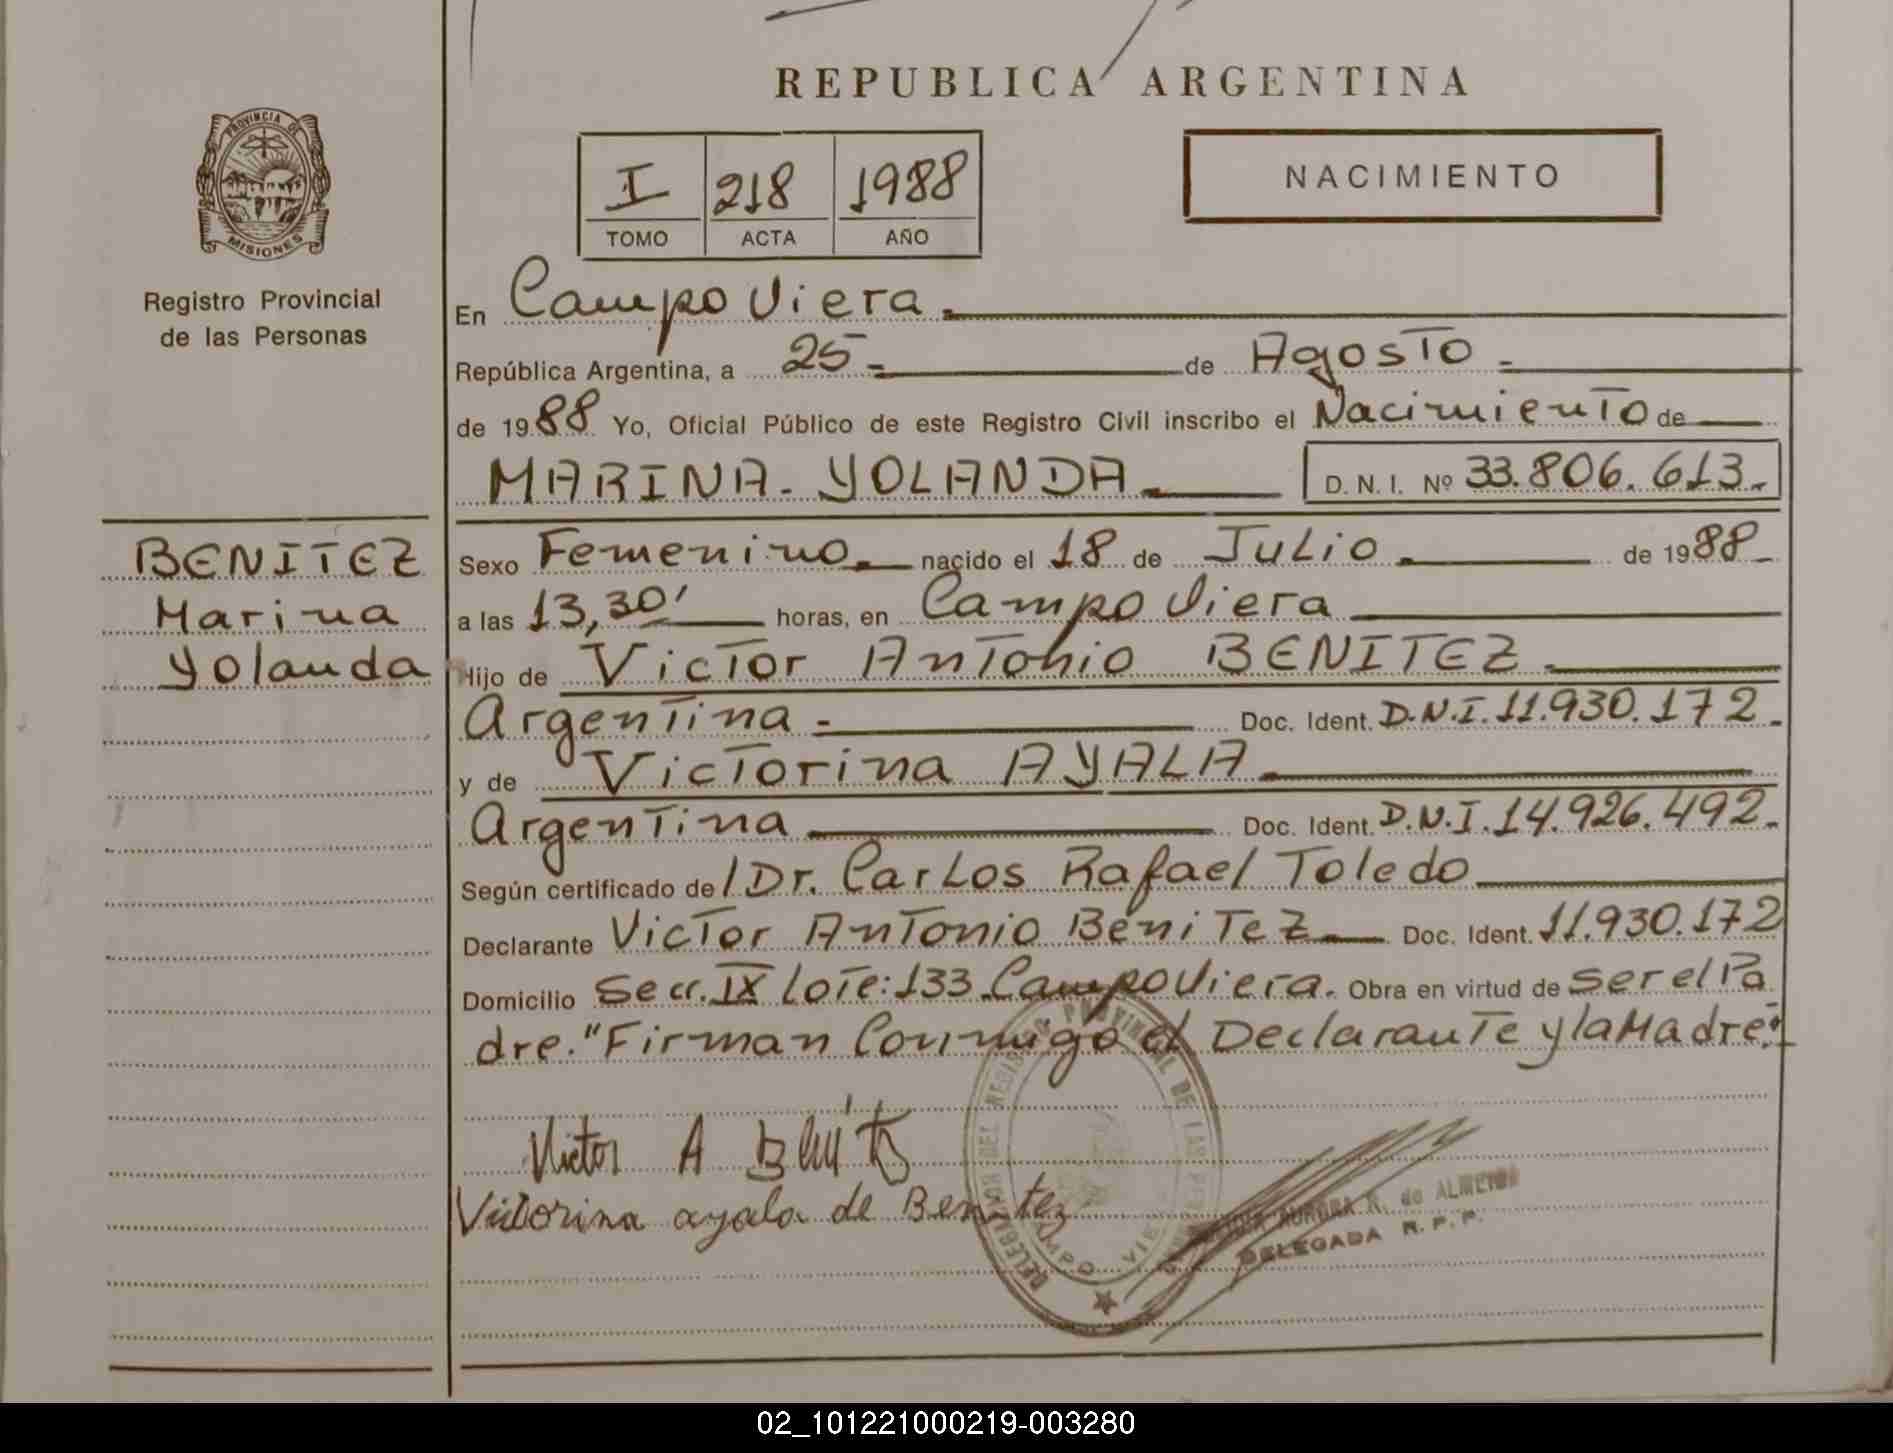 REPUBLICA ARGENTINA
PROVINCIA DE
MISIONES
Registro Provincial
de las Personas
I 218 1988
TOMO ACTA AÑO
NACIMIENTO
En Campo Viera.
República Argentina, a 25 de Agosto
de 1988 Yo, Oficial Público de este Registro Civil inscribo el Nacimiento de
MARINA - YOLANDA D. N. I. Nº 33.806.613.
BENITEZ
Marina
Yolanda
Sexo Femenino nacido el 18 de Julio de 1988
a las 13,30' horas, en Campo Viera
Hijo de Victor Antonio BENITEZ
Argentina Doc. Ident. D.N.I. 11.930.172
y de Victorina AYALA
Argentina Doc. Ident. D.N.I. 14.926.492.
Según certificado de / Dr. Carlos Rafael Toledo
Declarante Victor Antonio Benitez Doc. Ident. 11.930.172
Domicilio Secc. IX Lote: 133 Campo Viera. Obra en virtud de ser el Pa
dre. "Firman Conmigo el Declarante y la Madre."
Victor A Benitez
Victorina ayala de Benitez
DEL REGISTRO PROVINCIAL DE LAS
AURORA R. de ALMEIDA
DELEGADA R. P. P.
02_101221000219-003280